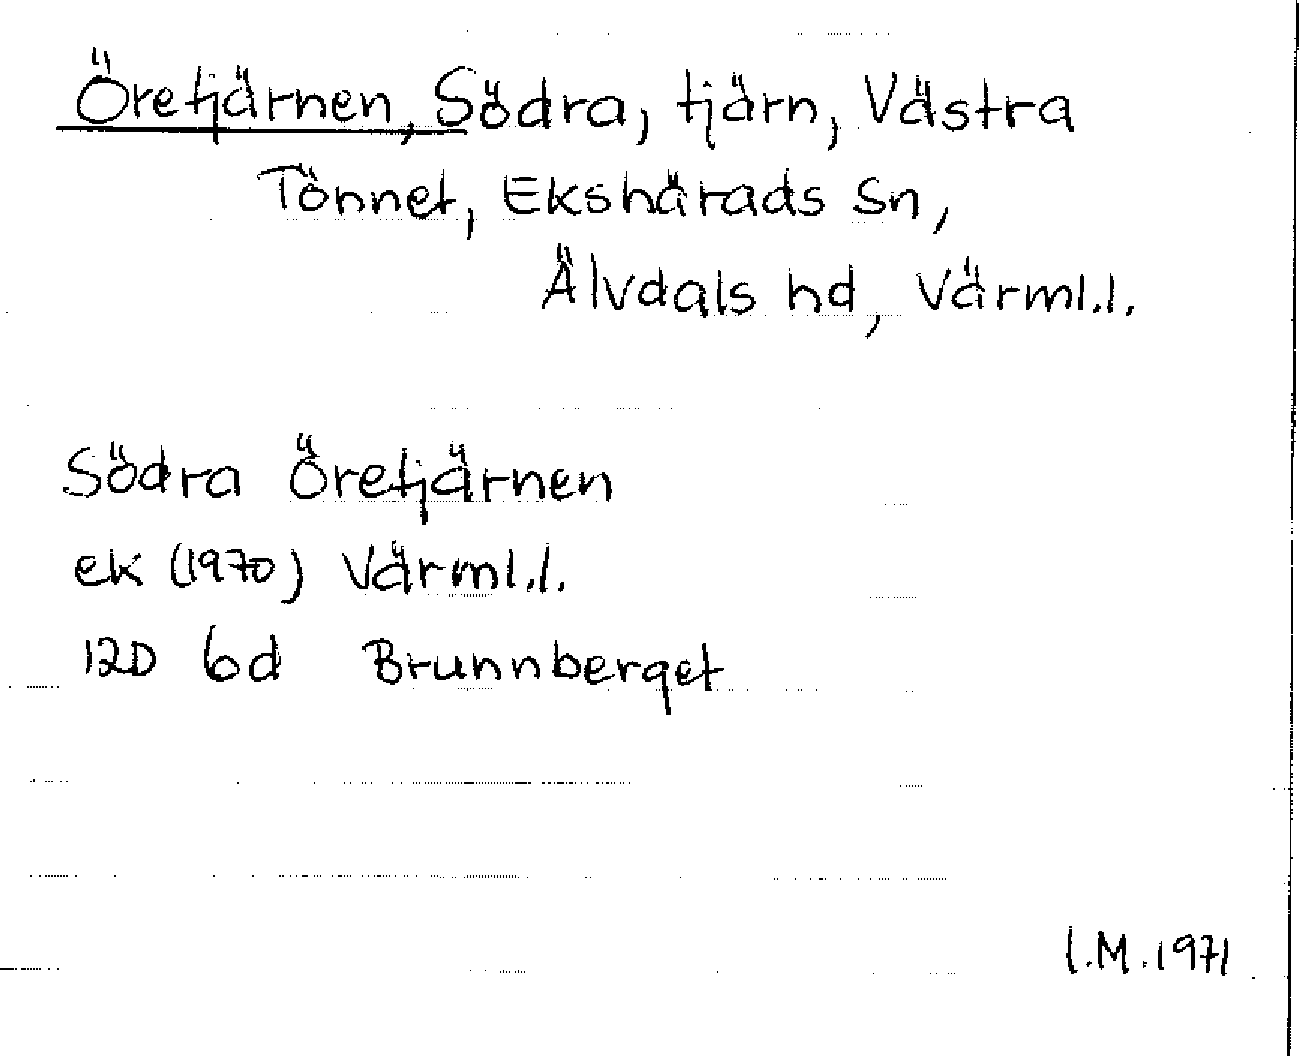 Öretjärnen, Södra, tjärn, Västra
Tönnet, Ekshärads sn,
Älvdals hd, Värml.l.
Södra Öretjärnen
ek (1970) Värml.l.
12D 6d Brunnberget
I.M. 1971